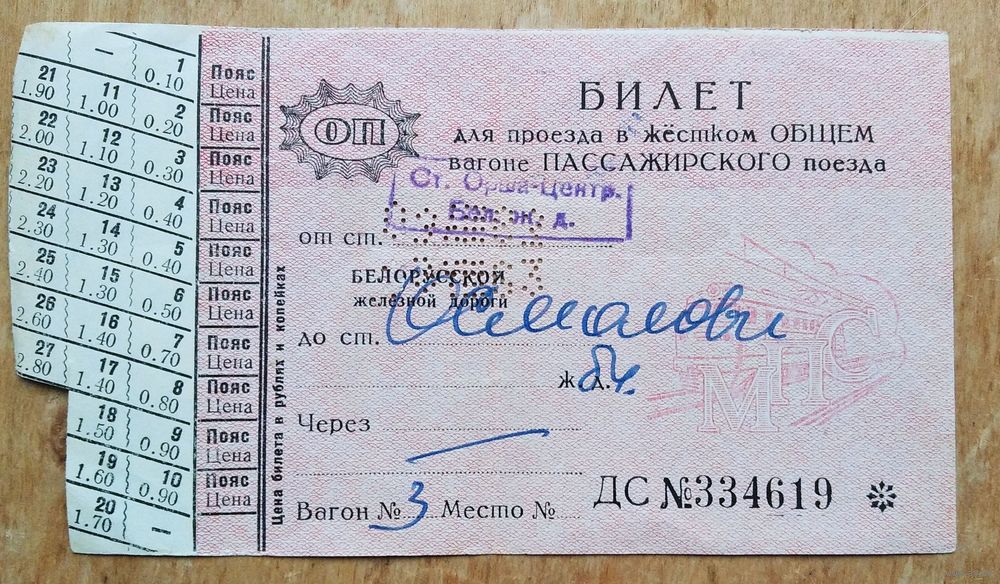 — 1
0.10
21 11 2
1.90 1.00 0.20
22 12 3
2.00 1.10 0.30
23 13 4
2.20 1.20 0.40
24 14 5
2.30 1.30 0.40
25 15 6
2.40 1.30 0.50
26 16 7
2.60 1.40 0.70
27 17 8
2.80 1.40 0.80
18 9
1.50 0.90
19 10
1.60 0.90
20 —
1.70
Пояс
Цена
Пояс
Цена
Пояс
Цена
Пояс
Цена
Пояс
Цена
Пояс
Цена
Пояс
Цена
Пояс
Цена
Пояс
Цена
Пояс
Цена
Цена билета в рублях и копейках
ОП
БИЛЕТ
для проезда в жёстком ОБЩЕМ
вагоне ПАССАЖИРСКОГО поезда
Ст. Орша-Центр.
Бел. ж. д.
от ст.
БЕЛОРУССКОЙ
железной дороги
до ст.
ж. д.
МПС
Через
Вагон № 3 Место №
ДС №334619